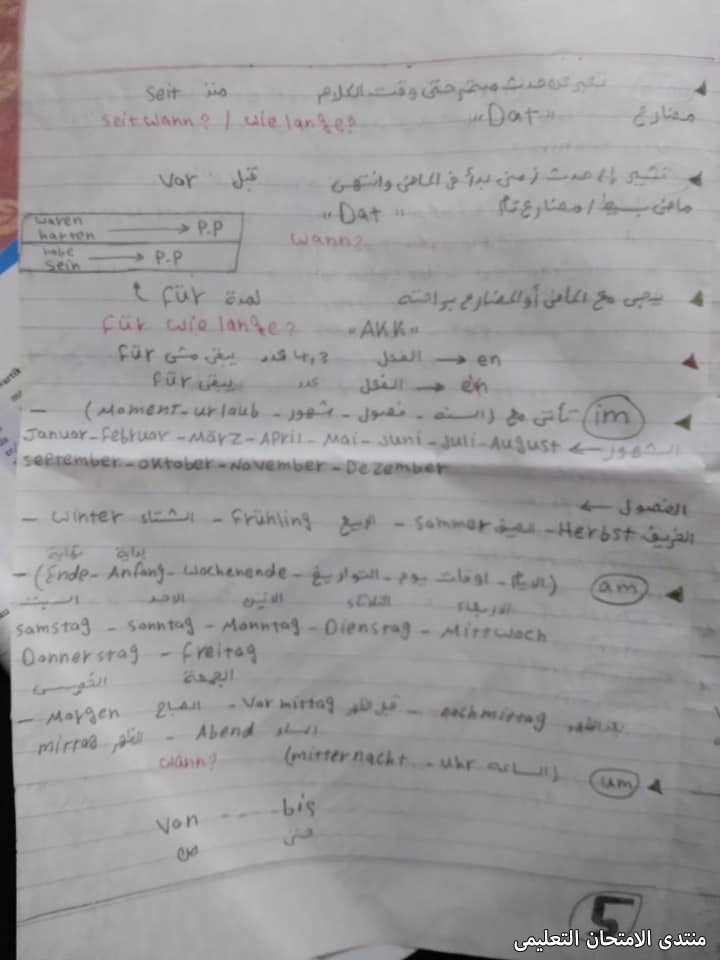 seit منذ تعبر عن حدث مستمر حتى وقت الكلام
seit wann? / wie lange? "Dat" مضارع
vor قبل تشير إلى حدث زمني بدأ في الماضي وانتهى
"Dat" ماضي بسيط / مضارع تام
waren
hatten → P.P
wann?
habe
sein → P.P
für لمدة يجئ مع الماضي أو المضارع
für wie lange? "AKK"
für يبقى الفعل → en
für يبقى عدد الفعل → en
im تأتي مع (السنه - فصول - شهور - Moment - urlaub) -
الشهور ← Januar - Februar - März - April - Mai - Juni - Juli - August
september - oktober - November - Dezember
الفصول ←
- winter الشتاء - Frühling ربيع - Sommer الصيف - Herbst الخريف
بداية نهاية
am (الايام - اوقات يوم - التواريخ - Wochenende - Anfang - Ende) -
السبت الاحد الاثنين الثلاثاء الاربعاء
samstag - sonntag - Monntag - Dienstag - Mittwoch
Donnerstag - Freitag
الخميس الجمعة
- Morgen الصباح - Vormittag قبل الظهر - nachmittag بعد الظهر
mittag الظهر - Abend المساء
wann? um (الساعه uhr - mitternacht)
von ---- bis
من حتى
5
منتدى الامتحان التعليمى